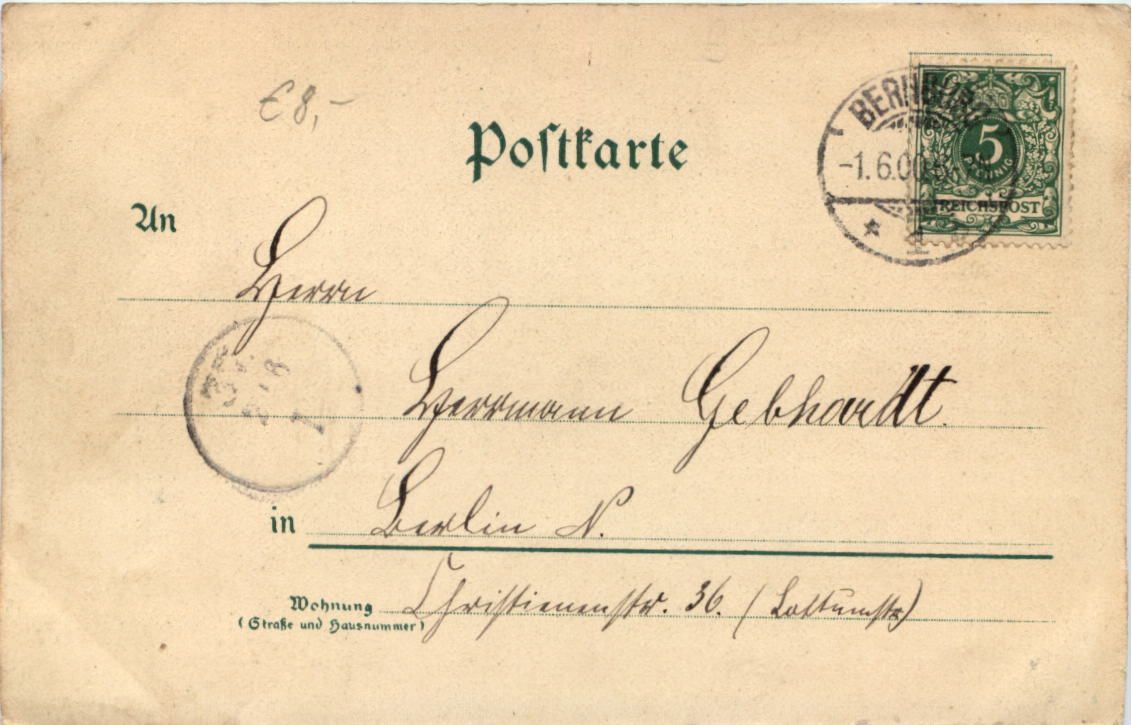 €8,-
Postkarte
BERNBURG
-1.6.00.
5
PFENNIG
REICHSPOST
An
Herrn
Herrmann Gebhardt.
in Berlin N.
Wohnung Christinenstr. 36. (Lottumstr)
(Straße und Hausnummer)